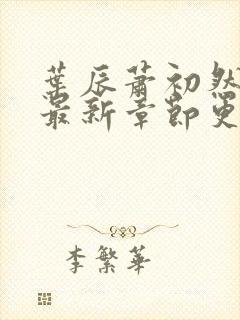 葉辰蕭初然
最新章節更
李繁華